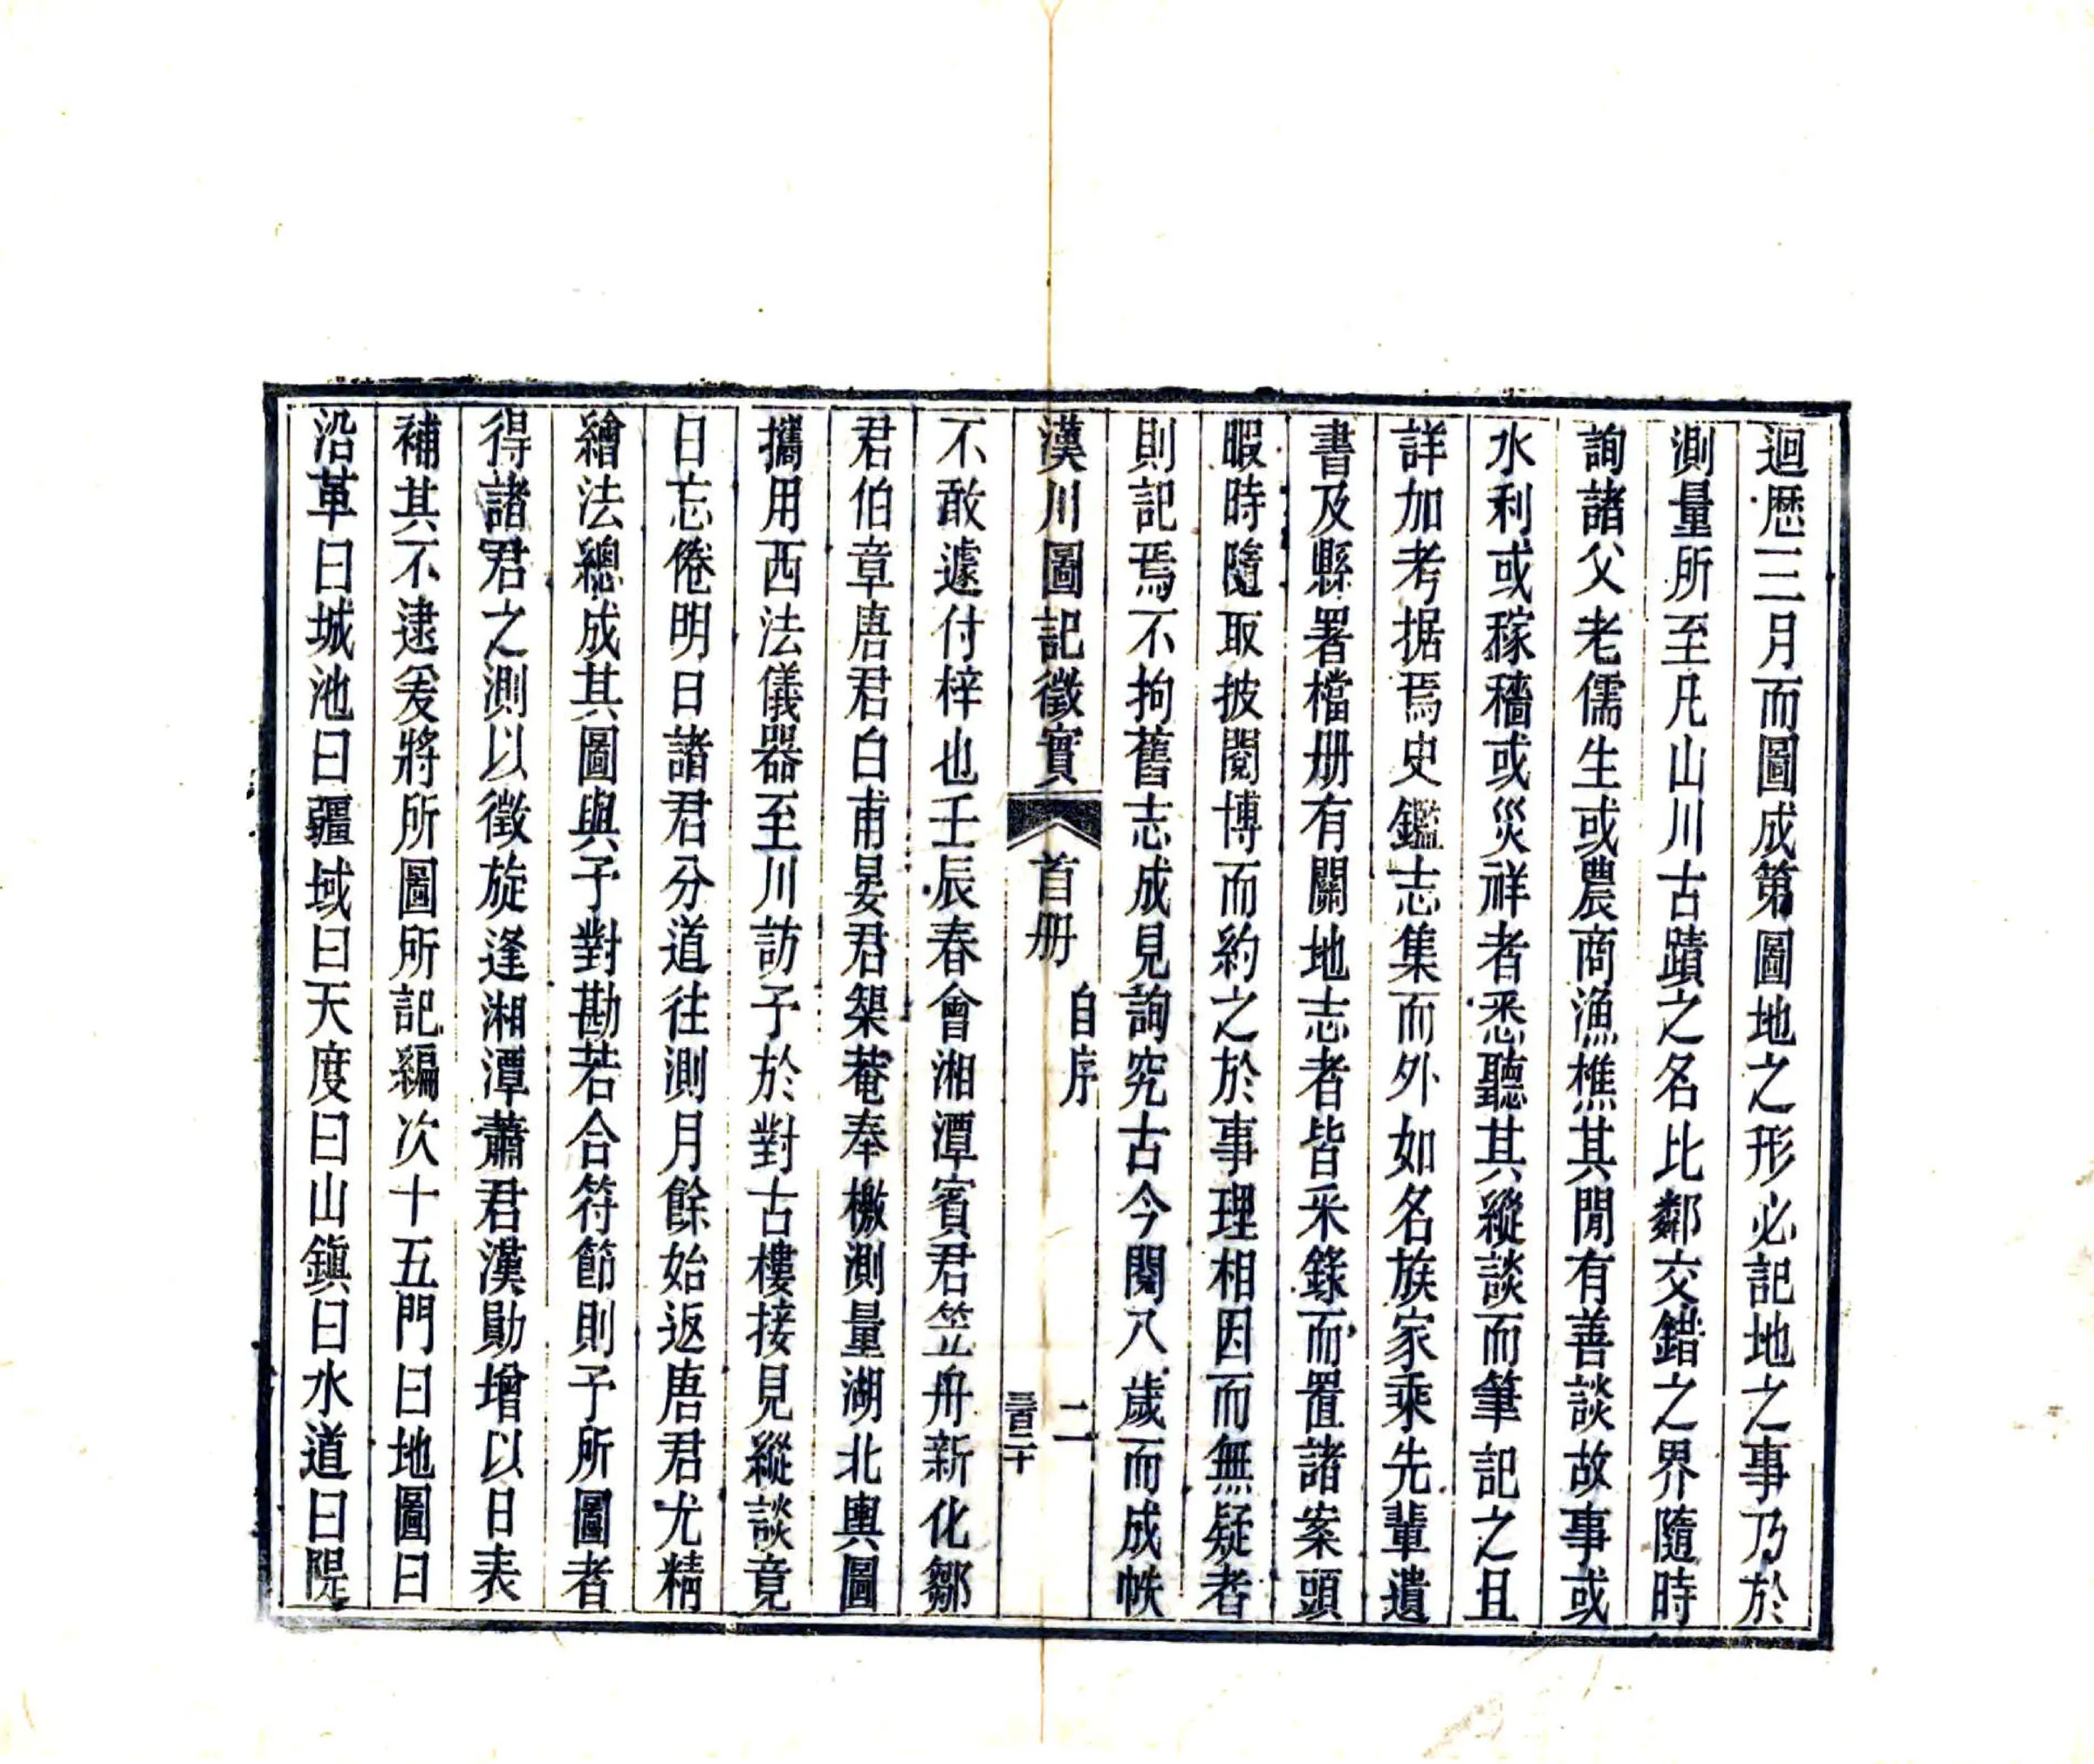 迴歷三月而圖成第圖地之形必記地之事乃於
測量所至凡山川古蹟之名比鄰交錯之界隨時
詢諸父老儒生或農商漁樵其閒有善談故事或
水利或稼穡或災祥者悉聽其縱談而筆記之且
詳加考据焉史鑑志集而外如名族家乘先輩遺
書及縣署檔册有關地志者皆采錄而置諸案頭
暇時隨取披閱博而約之於事理相因而無疑者
則記焉不拘舊志成見詢究古今閱八歲而成帙
漢川圖記徵實
首册
自序
二
不敢遽付梓也壬辰春會湘潭賓君笠舟新化鄒
君伯章唐君白甫晏君榘菴奉檄測量湖北輿圖
攜用西法儀器至川訪予於對古樓接見縱談竟
日忘倦明日諸君分道往測月餘始返唐君尤精
繪法總成其圖與予對勘若合符節則予所圖者
得諸君之測以徵旋逢湘潭蕭君漢勛增以日表
補其不逮爰將所圖所記編次十五門曰地圖曰
沿革曰城池曰疆域曰天度曰山鎮曰水道曰隄